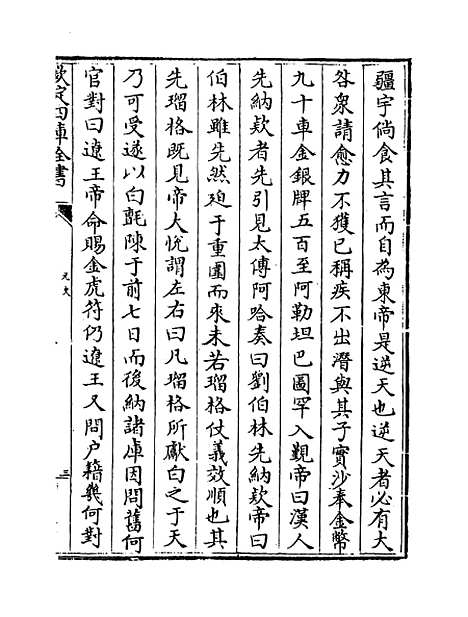 疆宇倘食其言而自為東帝是逆天也逆天者必有大
咎衆請愈力不獲已稱疾不出潛與其子實沙奉金幣
九十車金銀牌五百至阿勒坦巴圖罕入覲帝曰漢人
先納欵者先引見太傅阿哈奏曰劉伯林先納欵帝曰
伯林雖先然廹于重圍而來未若瑠格仗義效順也其
先瑠格既見帝大悅謂左右曰凡瑠格所獻白之于天
乃可受遂以白氊陳于前七日而後納諸庫因問舊何
官對曰遼王帝命賜金虎符仍遼王又問户籍幾何對
欽定四庫全書
元史
三